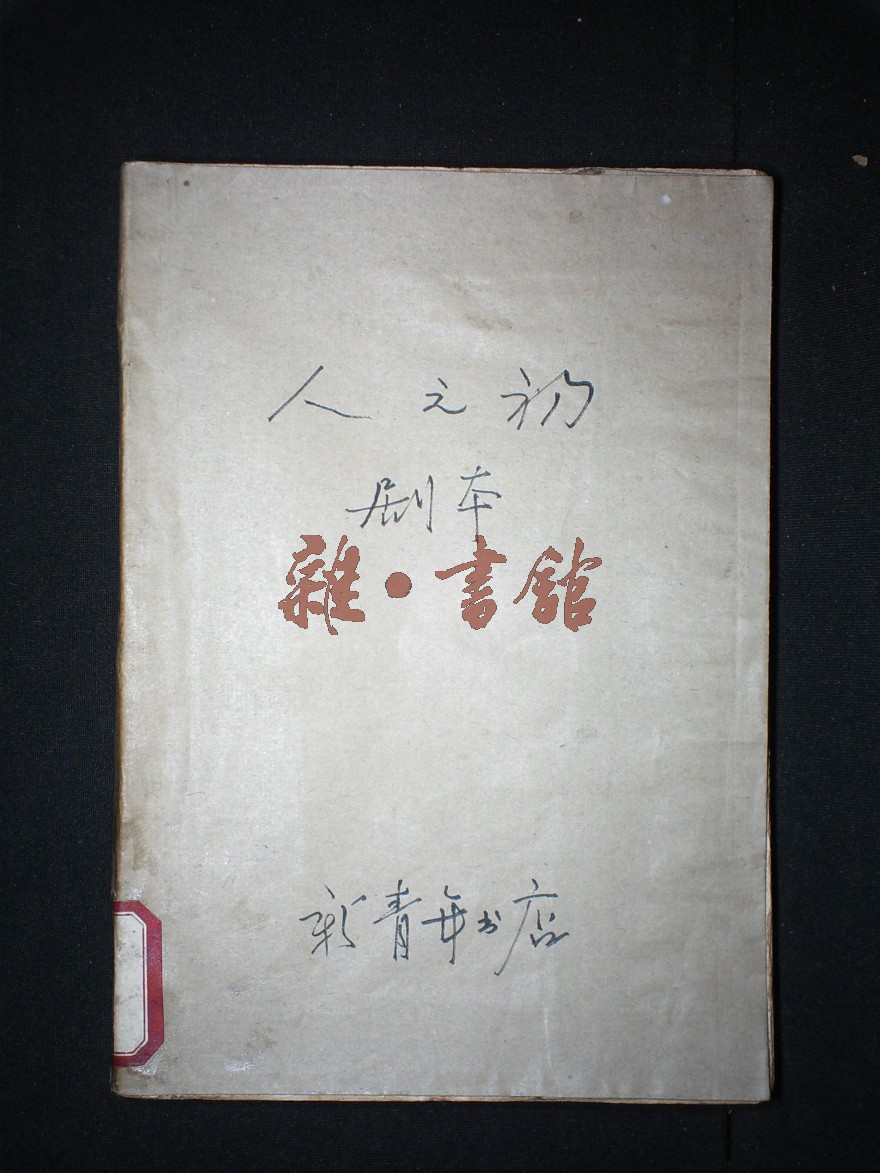 人之初
剧本
雜·書館
新青年书店